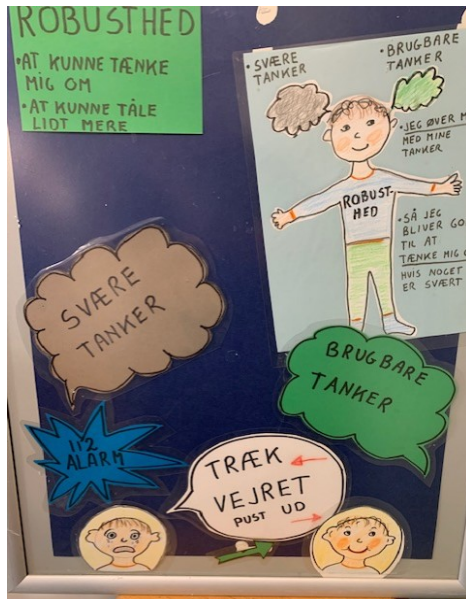 ROBUSTHED
• AT KUNNE TÆNKE
MIG OM
• AT KUNNE TÅLE
LIDT MERE
• SVÆRE
TANKER
• BRUGBARE
TANKER
• JEG ØVER
MED MINE
TANKER
ROBUST-
HED
• SÅ JEG
BLIVER
TIL AT
TÆNKE MIG
HVIS NOGET
ER SVÆRT
SVÆRE
TANKER
BRUGBARE
TANKER
112
ALARM
TRÆK
VEJRET
PUST UD